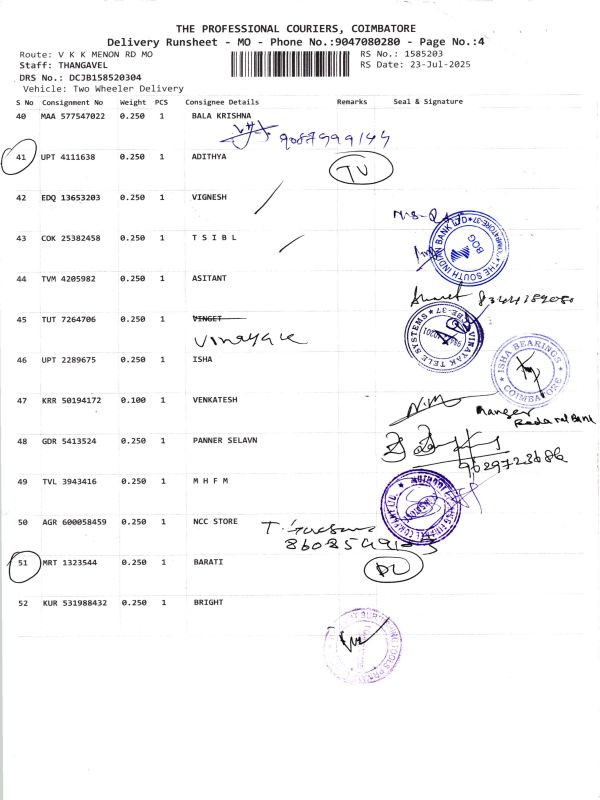 THE PROFESSIONAL COURIERS, COIMBATORE
Delivery Runsheet - MO - Phone No.:9047080280 - Page No.:4
Route: V K K MENON RD MO
RS No.: 1585203
Staff: THANGAVEL
RS Date: 23-Jul-2025
DRS No.: DCJB158520304
Vehicle: Two Wheeler Delivery
S No Consignment No Weight PCS Consignee Details Remarks Seal & Signature
40 MAA 577547022 0.250 1 BALA KRISHNA
9087999144
41 UPT 4111638 0.250 1 ADITHYA
42 EDQ 13653203 0.250 1 VIGNESH
43 COK 25382458 0.250 1 T S I B L
THE SOUTH INDIAN BANK LTD
BOG
44 TVM 4205982 0.250 1 ASITANT
45 TUT 7264706 0.250 1 VINGET
Vinayak
VINAYAK TELE SYSTEMS
46 UPT 2289675 0.250 1 ISHA
ISHA BEARINGS
COIMBATORE
47 KRR 50194172 0.100 1 VENKATESH
48 GDR 5413524 0.250 1 PANNER SELAVN
49 TVL 3943416 0.250 1 M H F M
50 AGR 600058459 0.250 1 NCC STORE
51 MRT 1323544 0.250 1 BARATI
52 KUR 531988432 0.250 1 BRIGHT